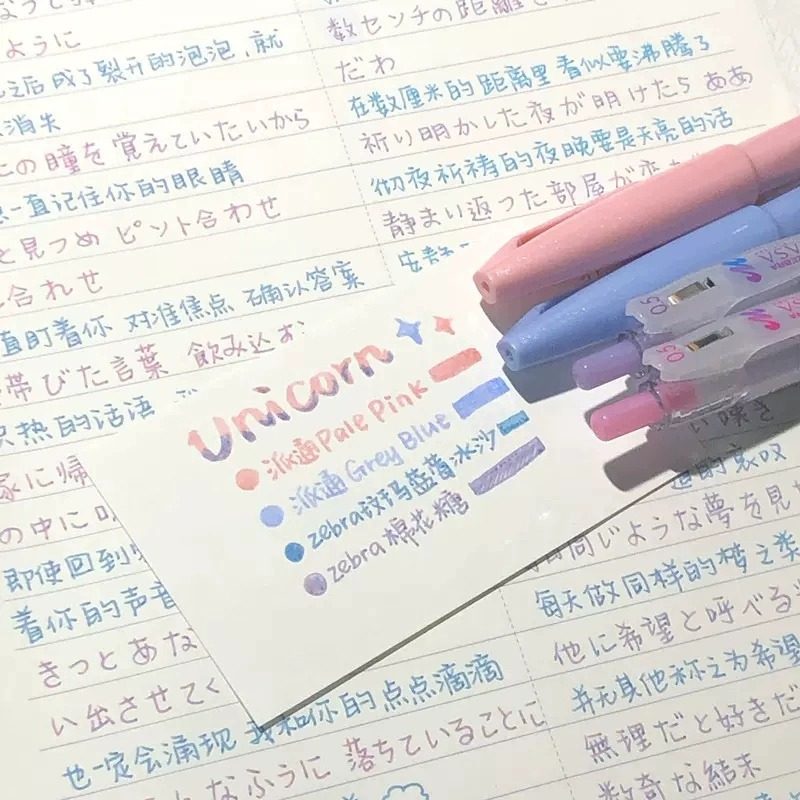 ように
之后成了裂开的泡泡,就
消失
この瞳を覚えていたいから
一直记住你的眼睛
と見つめ ピント合わせ
合わせ
直盯着你 对准焦点 确认答案
帯びた言葉 飲み込む
热的话语
家に帰
の中に
即使回到
着你的声音
きっとあな
い出させてく
也一定会涌现 我和你的点点滴滴
なふうに 落ちていることに
数センチの距離
だわ
在数厘米的距离里 看似要沸腾了
祈り明かした夜が明けたら ああ
彻夜祈祷的夜晚要是天亮的话
静まい返った部屋が
Unicorn
派通Pale Pink
派通Grey Blue
zebra蓝莓冰沙
zebra棉花糖
ZEBRA
0.5
0.5
い嘆き
的哀叹
同じような夢を見
每天做同样的梦之类
他に希望と呼べる
并无其他称之为希望
無理だと好きだ
数奇な結末